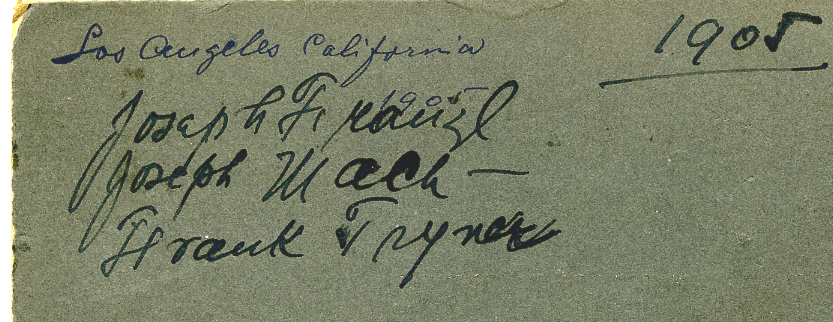 Los Angeles California 1905
1905
Joseph Franzl
Joseph Mach —
Frank